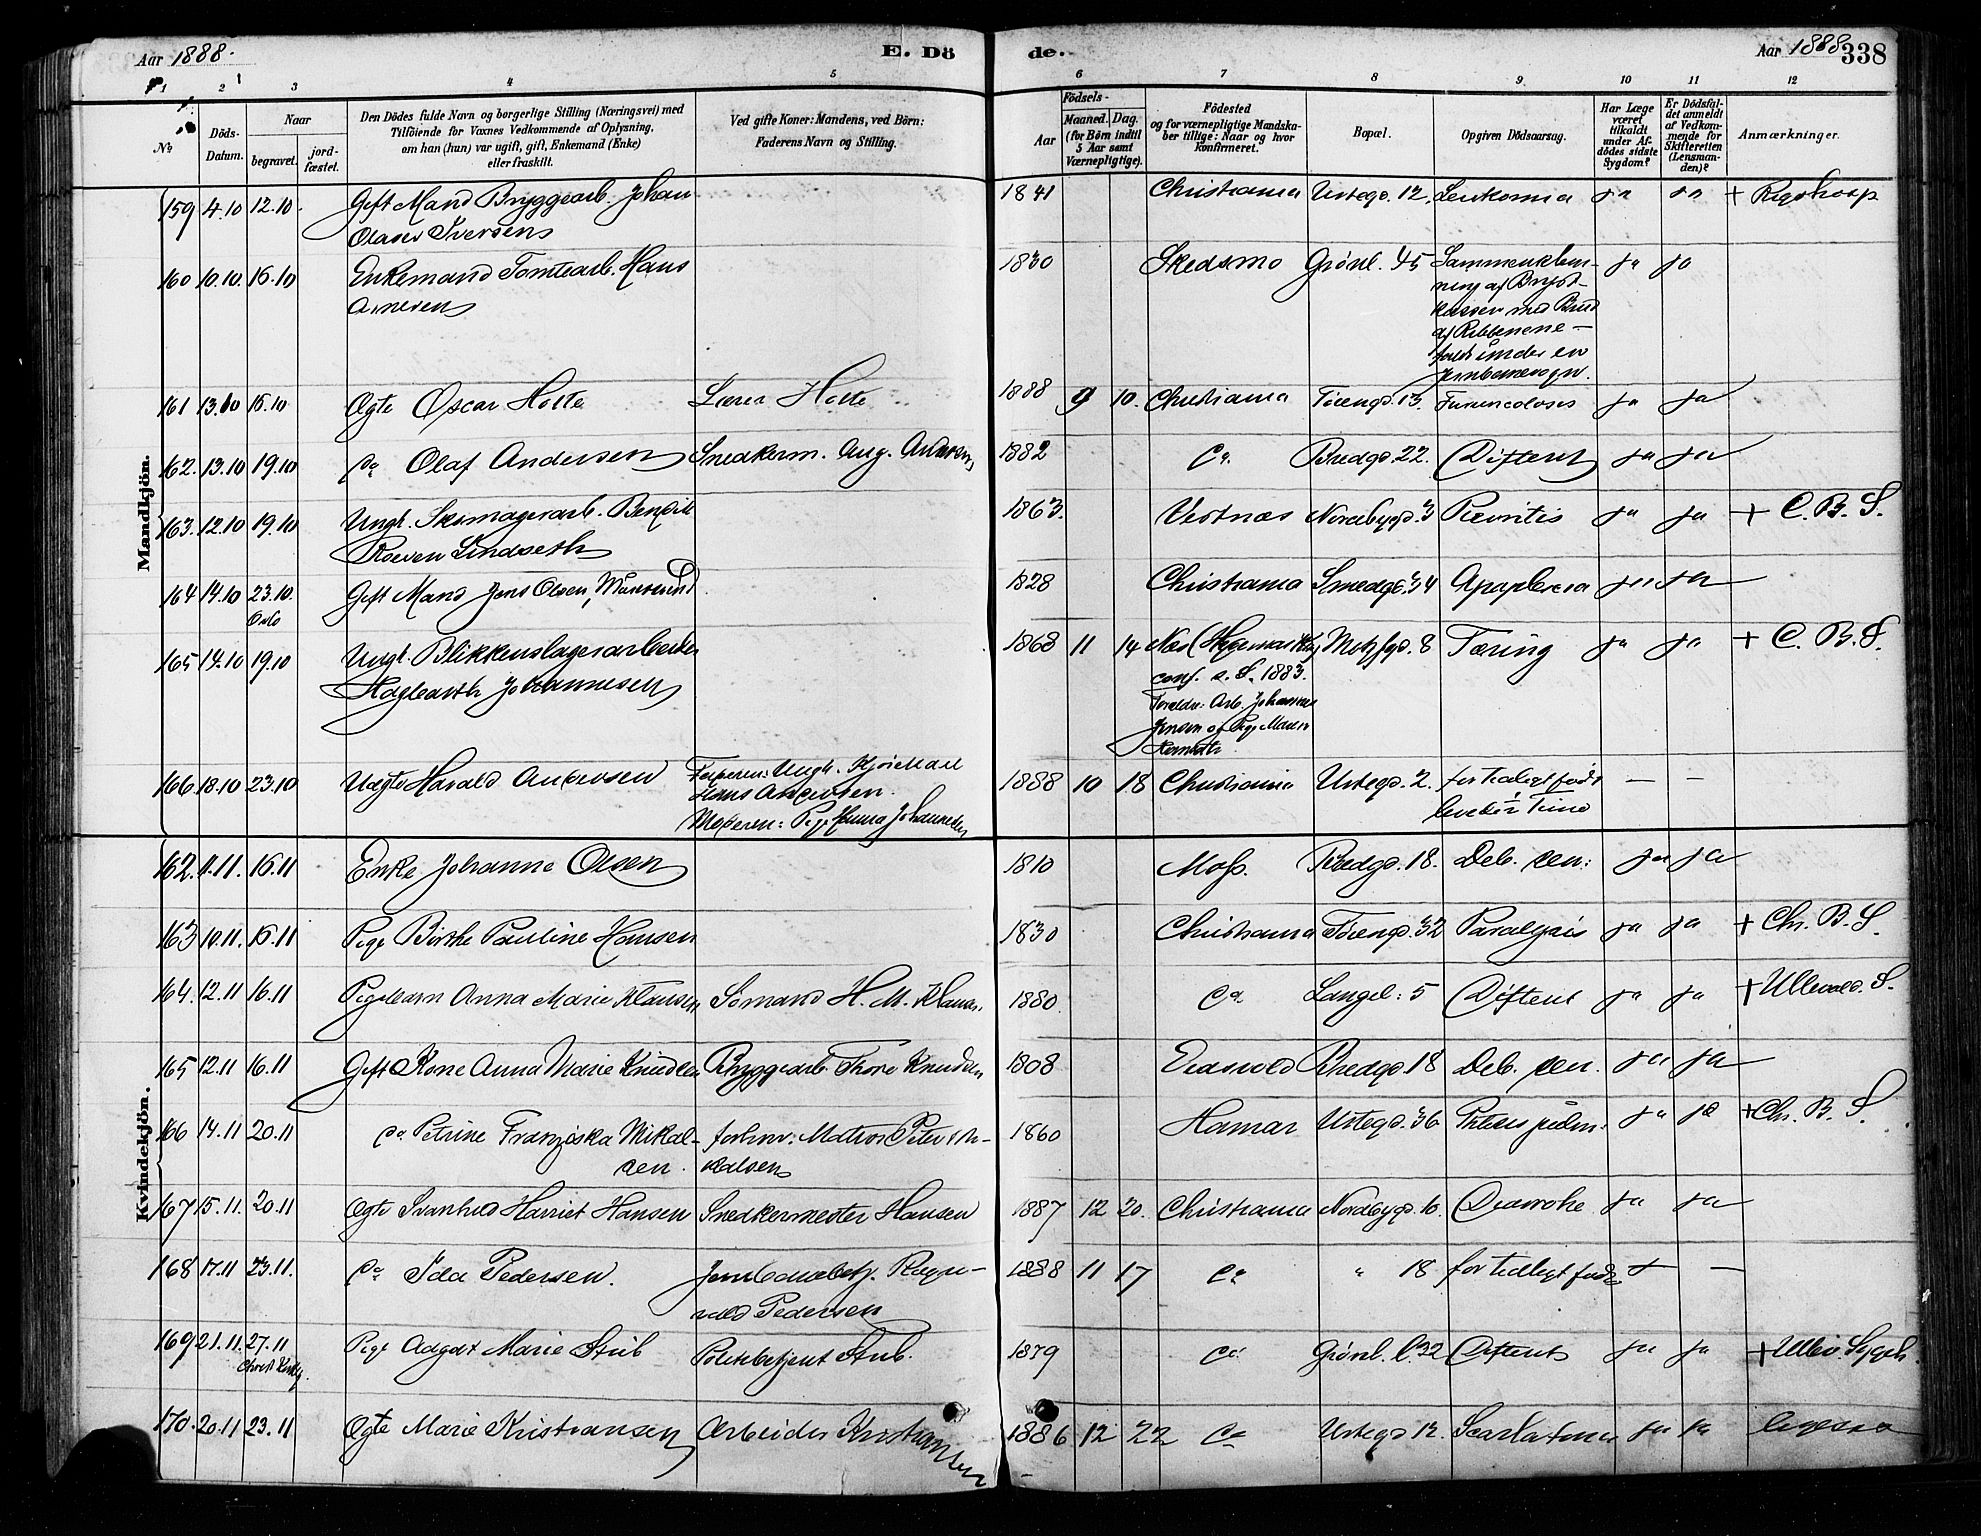 Aar 1888.
E. Dö
de.
Aar 1888
338
1 2 3 4 5 6 7 8 9 10 11 12
No
Döds-
Datum.
Naar
begravet.
jord-
fæstet.
Den Dödes fulde Navn og borgerlige Stilling (Næringsvei) med
Tilföiende for Voxnes Vedkommende af Oplysning,
om han (hun) var ugift, gift, Enkemand (Enke)
eller fraskilt.
Ved gifte Koner: Mandens, ved Börn:
Faderens Navn og Stilling.
Födsels-
Aar
Maaned.
Dag.
(for Börn indtil
5 Aar samt
Værnepligtige).
Födested
og for værnepligtige Mandska-
ber tillige: Naar og hvor
konfirmeret.
Bopæl.
Opgiven Dödsaarsag.
Har Læge
været
tilkaldt
under Af-
dödes sidste
Sygdom?
Er Dödsfal-
det anmeldt
af Vedkom-
mende for
Skifteretten
(Lensman-
den)?
Anmærkninger.
Mandkjön.
159 4.10 12.10. Gift Mand Bryggearb. Johan 1841 Christiania Urtegd. 12. Leukæmia ja ja + Rigshosp
Olaves Iversen
160 10.10. 16.10 Enkemand Tomtearb. Hans 1830 Skedsmo Grønl. 45 Sammenklem- ja ja
Arnesen
ning af Bryst-
kassen med Brud
af Ribbenene -
faldt under en
Jernbanevogn.
161 13.10 16.10 Ægte Oscar Holte Lærer Holte 1888 9 10. Christiania Tøiengd. 13. Furunculosis ja ja
162. 13.10 19.10 do Olaf Andersen Snedkerm. Aug. Andersen 1882 do. Bredgd. 22. Difterit ja ja
163. 12.10 19.10 Ungk. Skomagerarb. 1863. Vestnæs Nordbygd. 3 Pleuritis ja ja + C. B. S.
Lindseth
164 14.10 23.10. Gift Mand Jens Olsen, 1828 Christiania Smedgd. 34 Apoplexia ja ja
Oslo
165 14.10 19.10 Ungk. Blikkenslagerarbeider 1868 11 14 Næs Motzfgd. 8 Tæring ja ja + C. B. S.
Johannesen
conf. 1883.
Forældre: Arb. Johannes
Jensen og Pige Maren
166. 18.10 23.10 Uægte Harald Andersen Faderen: Ungk. 1888 10 18 Christiania Urtegd. 2. for tidligt født - -
Hans Andersen.
levede 1 Time
Moderen: Pige Hanna Johannesen
Kvindekjön.
162. 11.11. 16.11 Enke Johanne Olsen 1810 Moss. Bredgd. 18. Deb. sen: ja ja
163 10.11. 16.11 Pige Birthe Pauline Hansen 1830 Christiania Tøiengd. 32 Paralysis ja ja + Chr. B. S.
164. 12.11 16.11 Pigebarn Anna Marie Klausen Sømand H. M. Klausen 1880. do Langel: 5 Difterit ja ja + Ullevold. S.
165 12.11 16.11 Gift Kone Anna Marie Knudsen Bryggearb. Thore Knudsen 1808 Eidsvold Bredgd. 18 Deb. sen. ja ja
166 14.11 20.11 do Petrine Franziska Mikal- forhenv: Matros Peter Mi- 1860 Hamar Urtegd. 36 Phtisis pulm: ja ja + Chr. B. S.
sen.
kalsen
167 15.11. 20.11 Ægte Svanhild Harriet Hansen Snedkermester Hansen 1887 12 20. Christiania Nordbygd. 10. Diarrohe ja ja
168 17.11 23.11. do Ida Pedersen. Jernbanebetj. Ragn- 1888 11 17 do " 18 for tidligt født -
vald Pedersen
169 21.11. 27.11 Pige Marie Stub Politibetjent Stub. 1879 do Grønl. l. 32 Difterit ja ja + Ullev. Sygeh.
170. 20.11 23.11 Ægte Marie Kristiansen Arbeider Kristiansen 1886 12 22 do Urtegd 12. Scarlatina ja ja